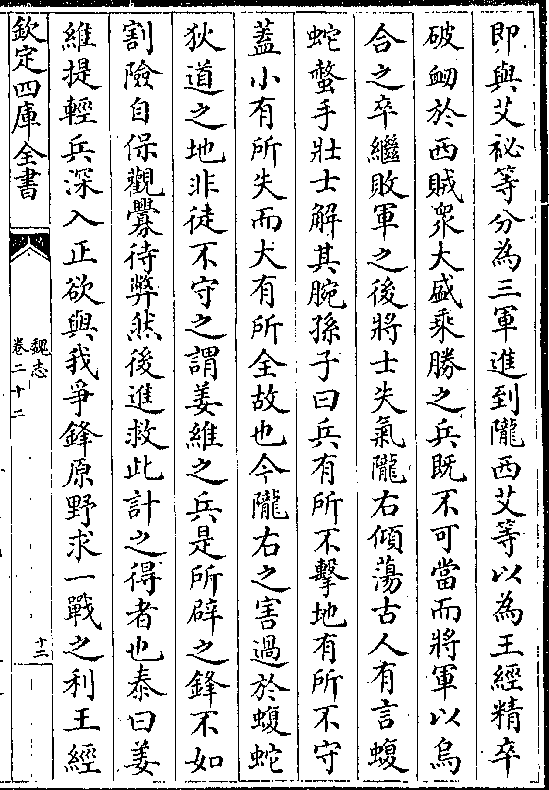 即與艾祕等分為三軍進到隴西艾等以為王經精卒
破衂於西賊衆大盛乘勝之兵既不可當而將軍以烏
合之卒繼敗軍之後將士失氣隴右傾蕩古人有言蝮
蛇螫手壯士解其腕孫子曰兵有所不擊地有所不守
蓋小有所失而大有所全故也今隴右之害過於蝮蛇
狄道之地非徒不守之謂姜維之兵是所辟之鋒不如
割險自保觀釁待弊然後進救此計之得者也泰曰姜
維提輕兵深入正欲與我爭鋒原野求一戰之利王經
欽定四庫全書
魏志
卷二十二
十二